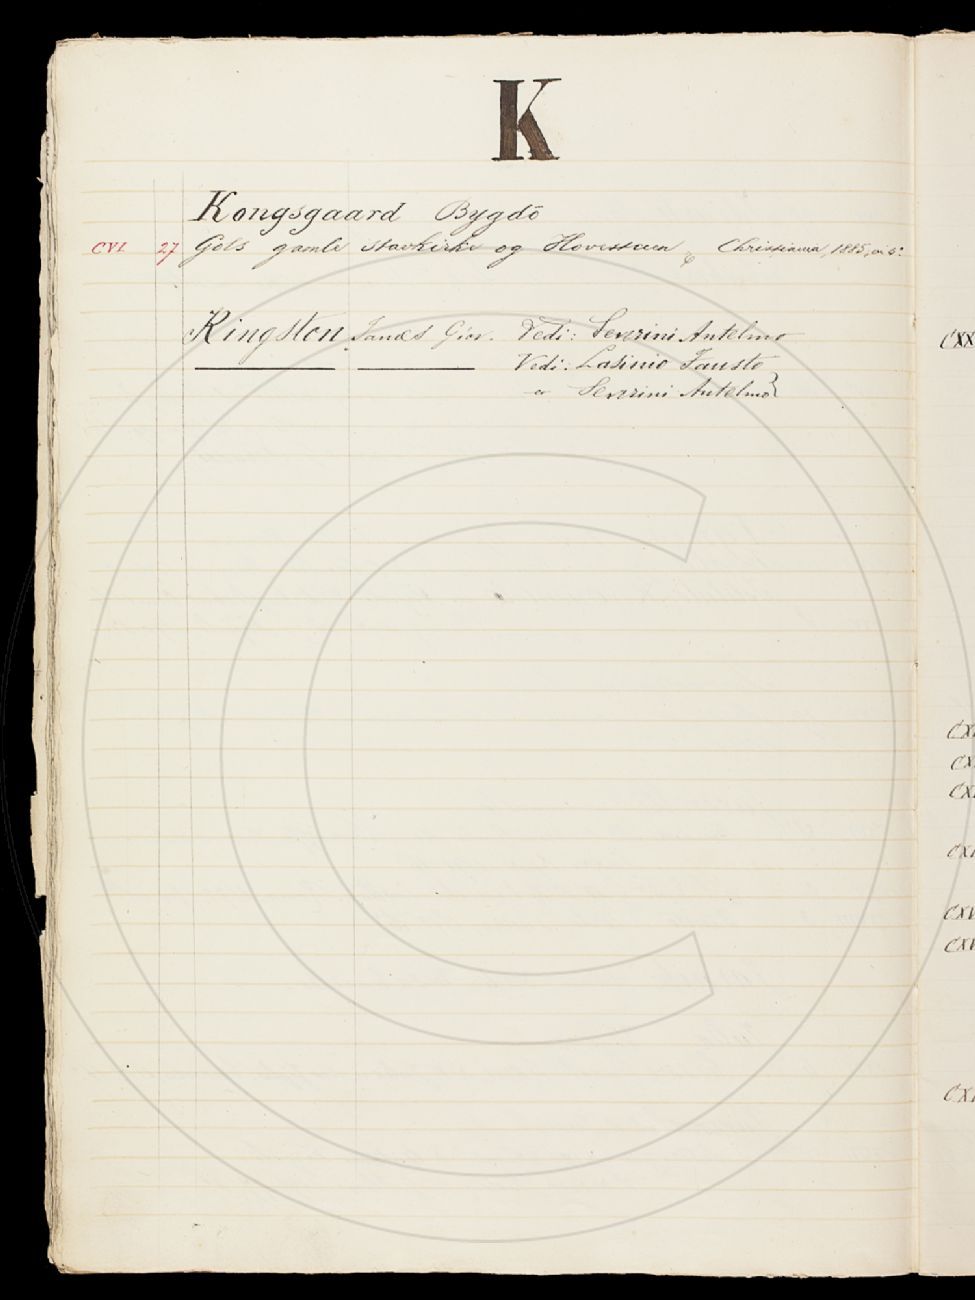 K
Kongsgaard Bygdö
CVI. 27 Gols gamle stavkirke og Hovestuen, Christiania, 1885, in 8°
Kingston James Giov. Vedi: Severini Antelmo
Vedi: Lasinio Fausto
e Severini Antelmo
CXX
CX
CX
CX
CX
CXV
CXV
CX